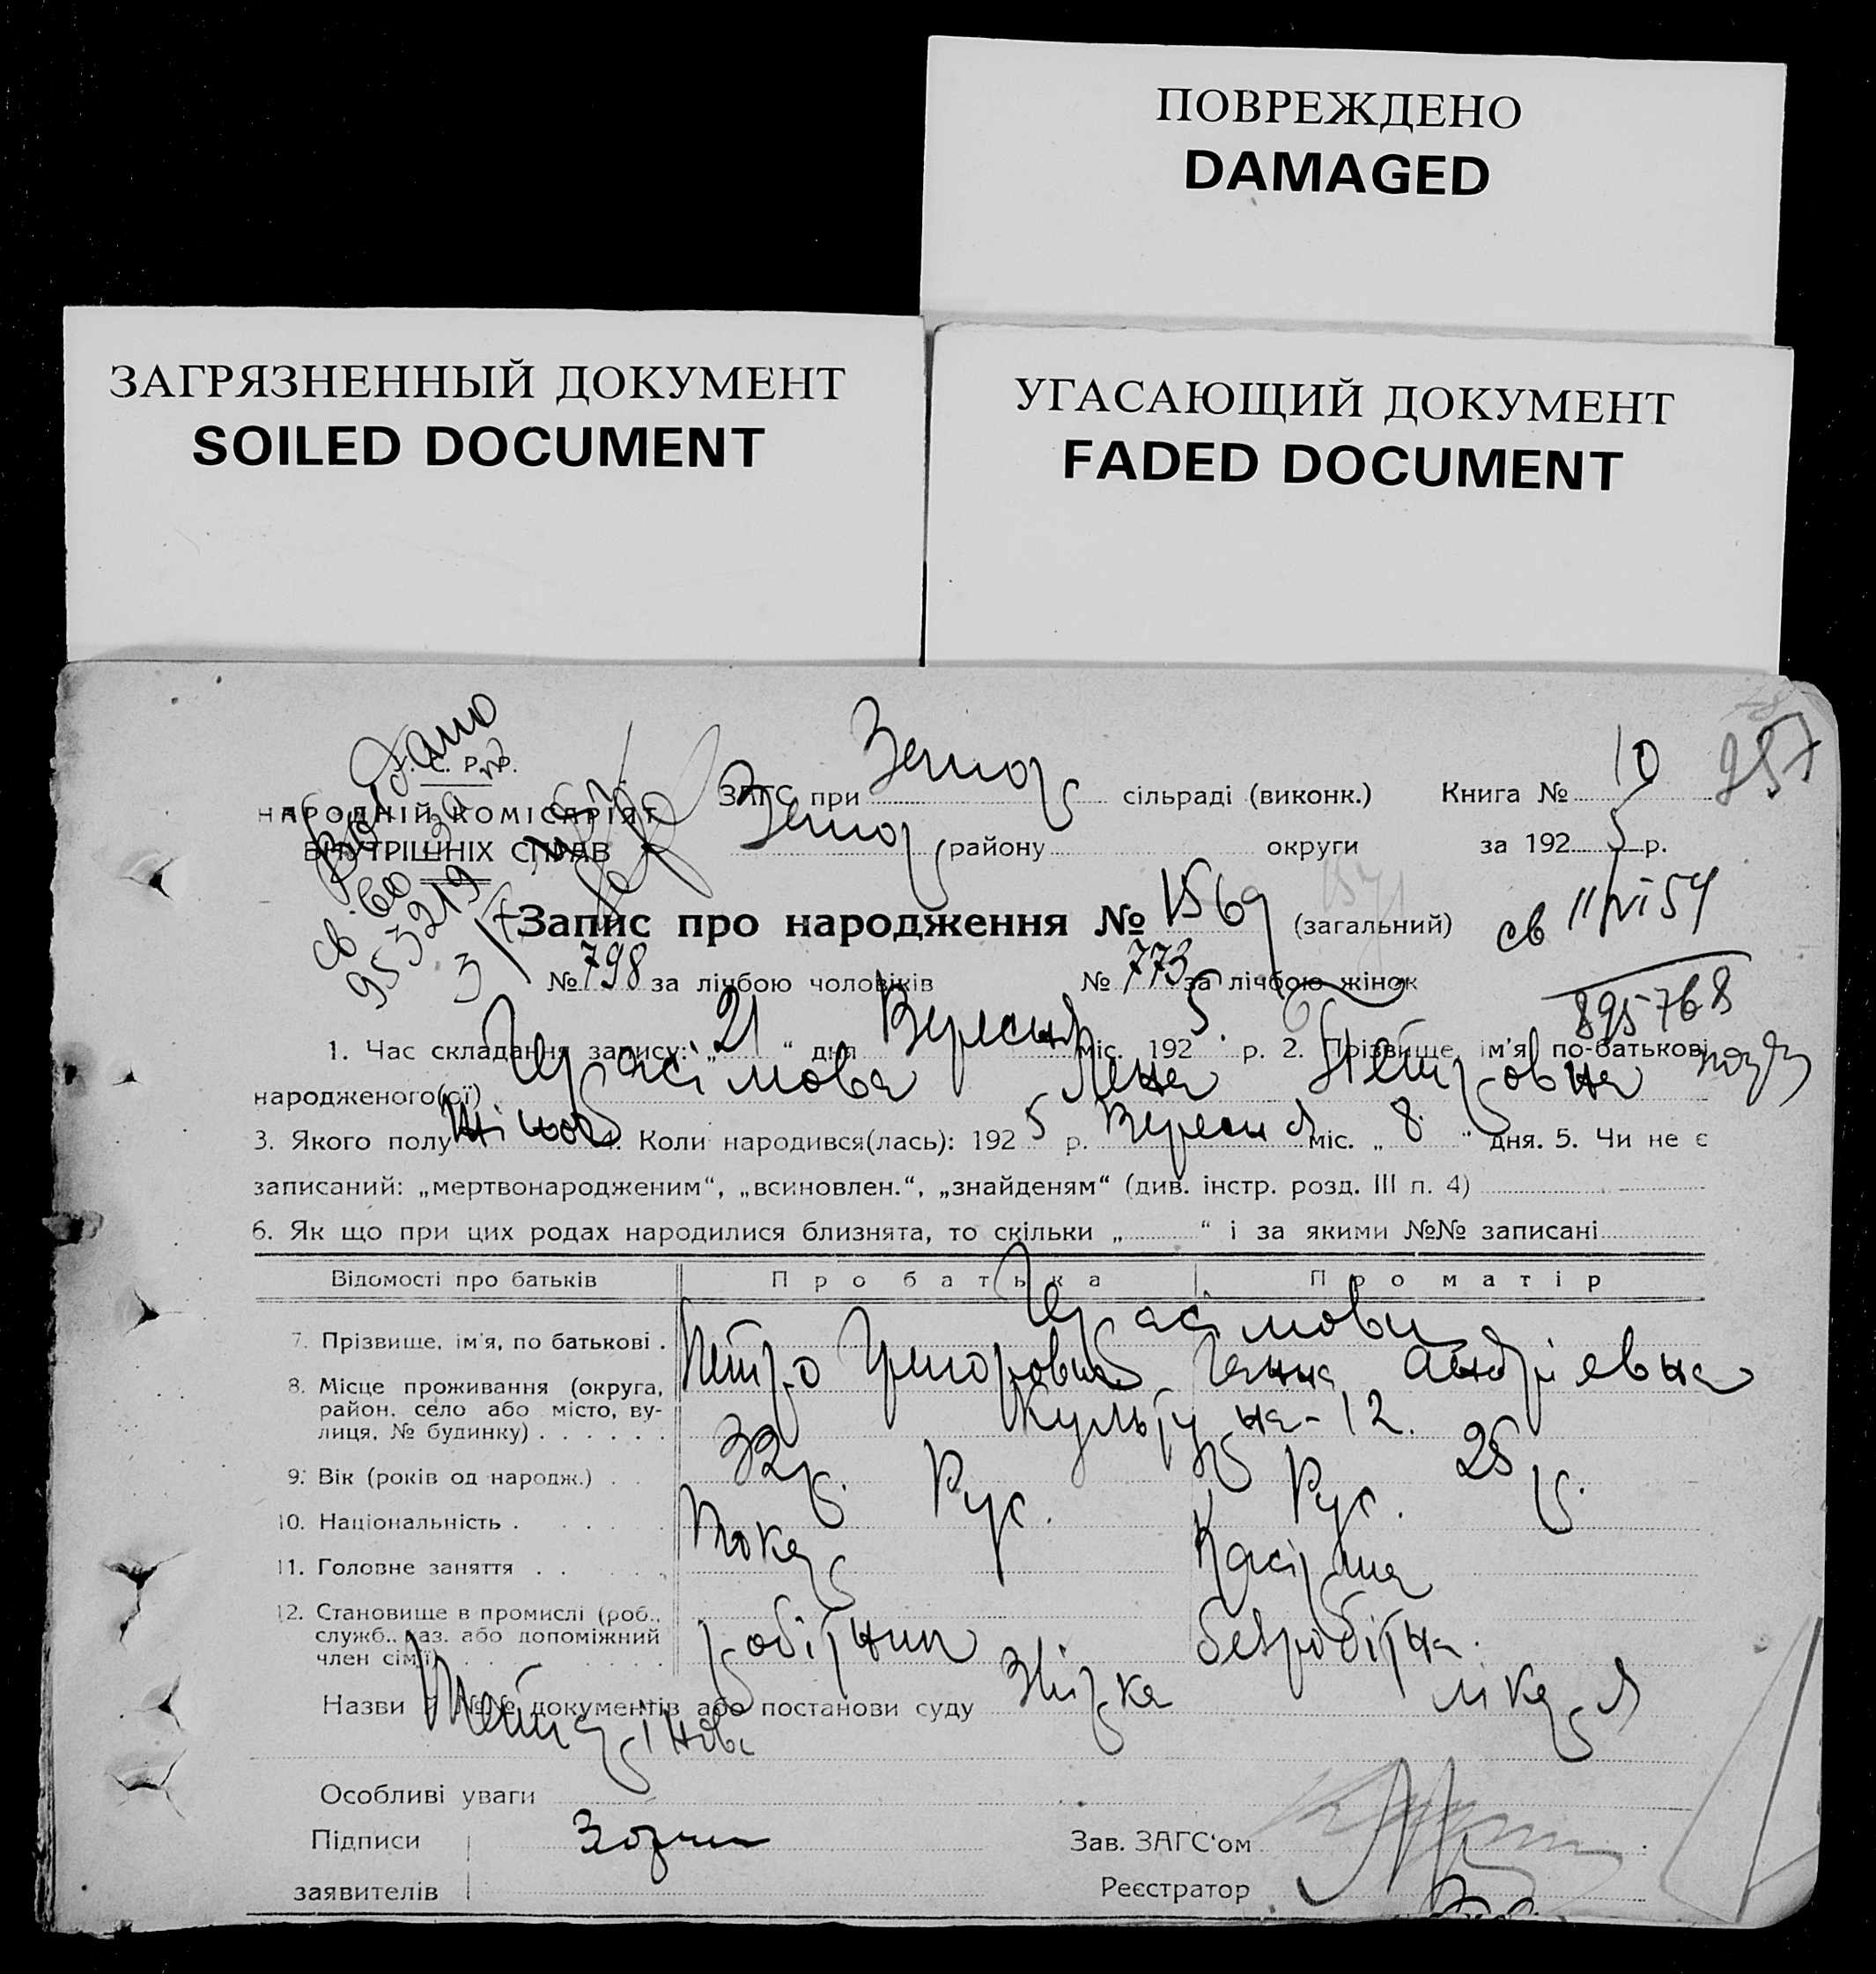 ПОВРЕЖДЕНО
DAMAGED
ЗАГРЯЗНЕННЫЙ ДОКУМЕНТ
SOILED DOCUMENT
УГАСАЮЩИЙ ДОКУМЕНТ
FADED DOCUMENT
257
НАРОДНІЙ КОМІСАРІЯТ
ВНУТРІШНІХ СПРАВ
ЗАГС при сільраді (виконк.) Книга № 10
району округи за 192 5 р.
Запис про народження № 1569 (загальний)
св 11/VI 54
№ 798 за лічбою чоловіків № 773 за лічбою жінок
895768
953219
1. Час складання запису: „ 21 “ дня Вересня міс. 192 5 р. 2. Прізвище ім'я по-батькові
народженого(ої) Герасімова Лена Петровна
3. Якого полу жіноч 4. Коли народився(лась): 192 5 р. Вересня міс. „ 8 “ дня. 5. Чи не є
записаний: „мертвонародженим“, „всиновлен.“, „знайденям“ (див. інстр. розд. III п. 4)
6. Як що при цих родах народилися близнята, то скільки „ “ і за якими №№ записані
Відомості про батьків Про батька Про матір
Герасімови
7. Прізвище, ім'я, по батькові . Петро Григорович Ганна Андріевна
8. Місце проживання (округа,
район, село або місто, ву-
лиця, № будинку) . . . . . . Культурна-12.
9. Вік (років од народж.) . . 32 р. 25 р.
10. Національність . . . . . . Рус. Рус.
11. Головне заняття . . . . . Токар Касірша
12. Становище в промислі (роб.,
служб., каз. або допоміжний
член сім'ї) робітник безробітна.
Назви і №№ документів або постанови суду Звірка лікаря
Особливі уваги
Підписи
заявителів
Зав. ЗАГС'ом
Реєстратор